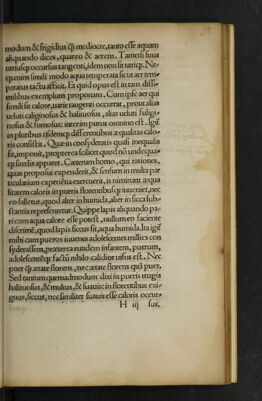 modum & frigidius q̃ mediocre, tanto esse aquam
aliquando dices, quanto & aerem. Tametsi suus
utriusq; occursus tangenti, idem non sit utriq;. Ne
quenim simili modo aqua temperata sicut aer tem
peratus tactui afficit. Et quid opus est in tam dissi
milibus exemplum proponam. Cum ipse aer qui
simili sit calore, uarie tangenti occurrat, prout alias
ueluti caliginosus & halituosus, alias ueluti fuligi-
nosus & fumosus: interim purus omnino est. Igit̃
in pluribus ijsdemq; differentibus æqualitas calo-
ris consistit. Quæ inconsyderatis quasi inæqualis
sit, imponit, propterea scilicet quod nõ undequa-
q; similis apparet. Cæterum homo, qui rationes,
quas proposui expenderit, & sensum in multa par
ticularium experiẽtia exercuerit, is nimirum æqua
litatem caloris in pueris florentibusq; inueniet, nec
eo falletur, quod alter in humida, alter in sicca sub-
stantia repræsentetur. Quippe lapis aliquando pa-
ri cum aqua calore esse potest, nullum eo faciente
discrimẽ, quod lapis siccus sit, aqua humida. Ita igit̃
mihi cum pueros iuuenes adolescentes milies con
syderassem, præterea eundem infantem, puerum,
adolescentẽq; factũ nihilo calidior uisus est. Nec
puer q̃ ætate florens, nec ætate florens quã puer.
Sed tantum quemadmodum dixi in pueris magis
halituosus, & multus, & suauis: in florentibus exi-
guus, siccus, nec similiter suauis esse caloris occur-
H iij sus,